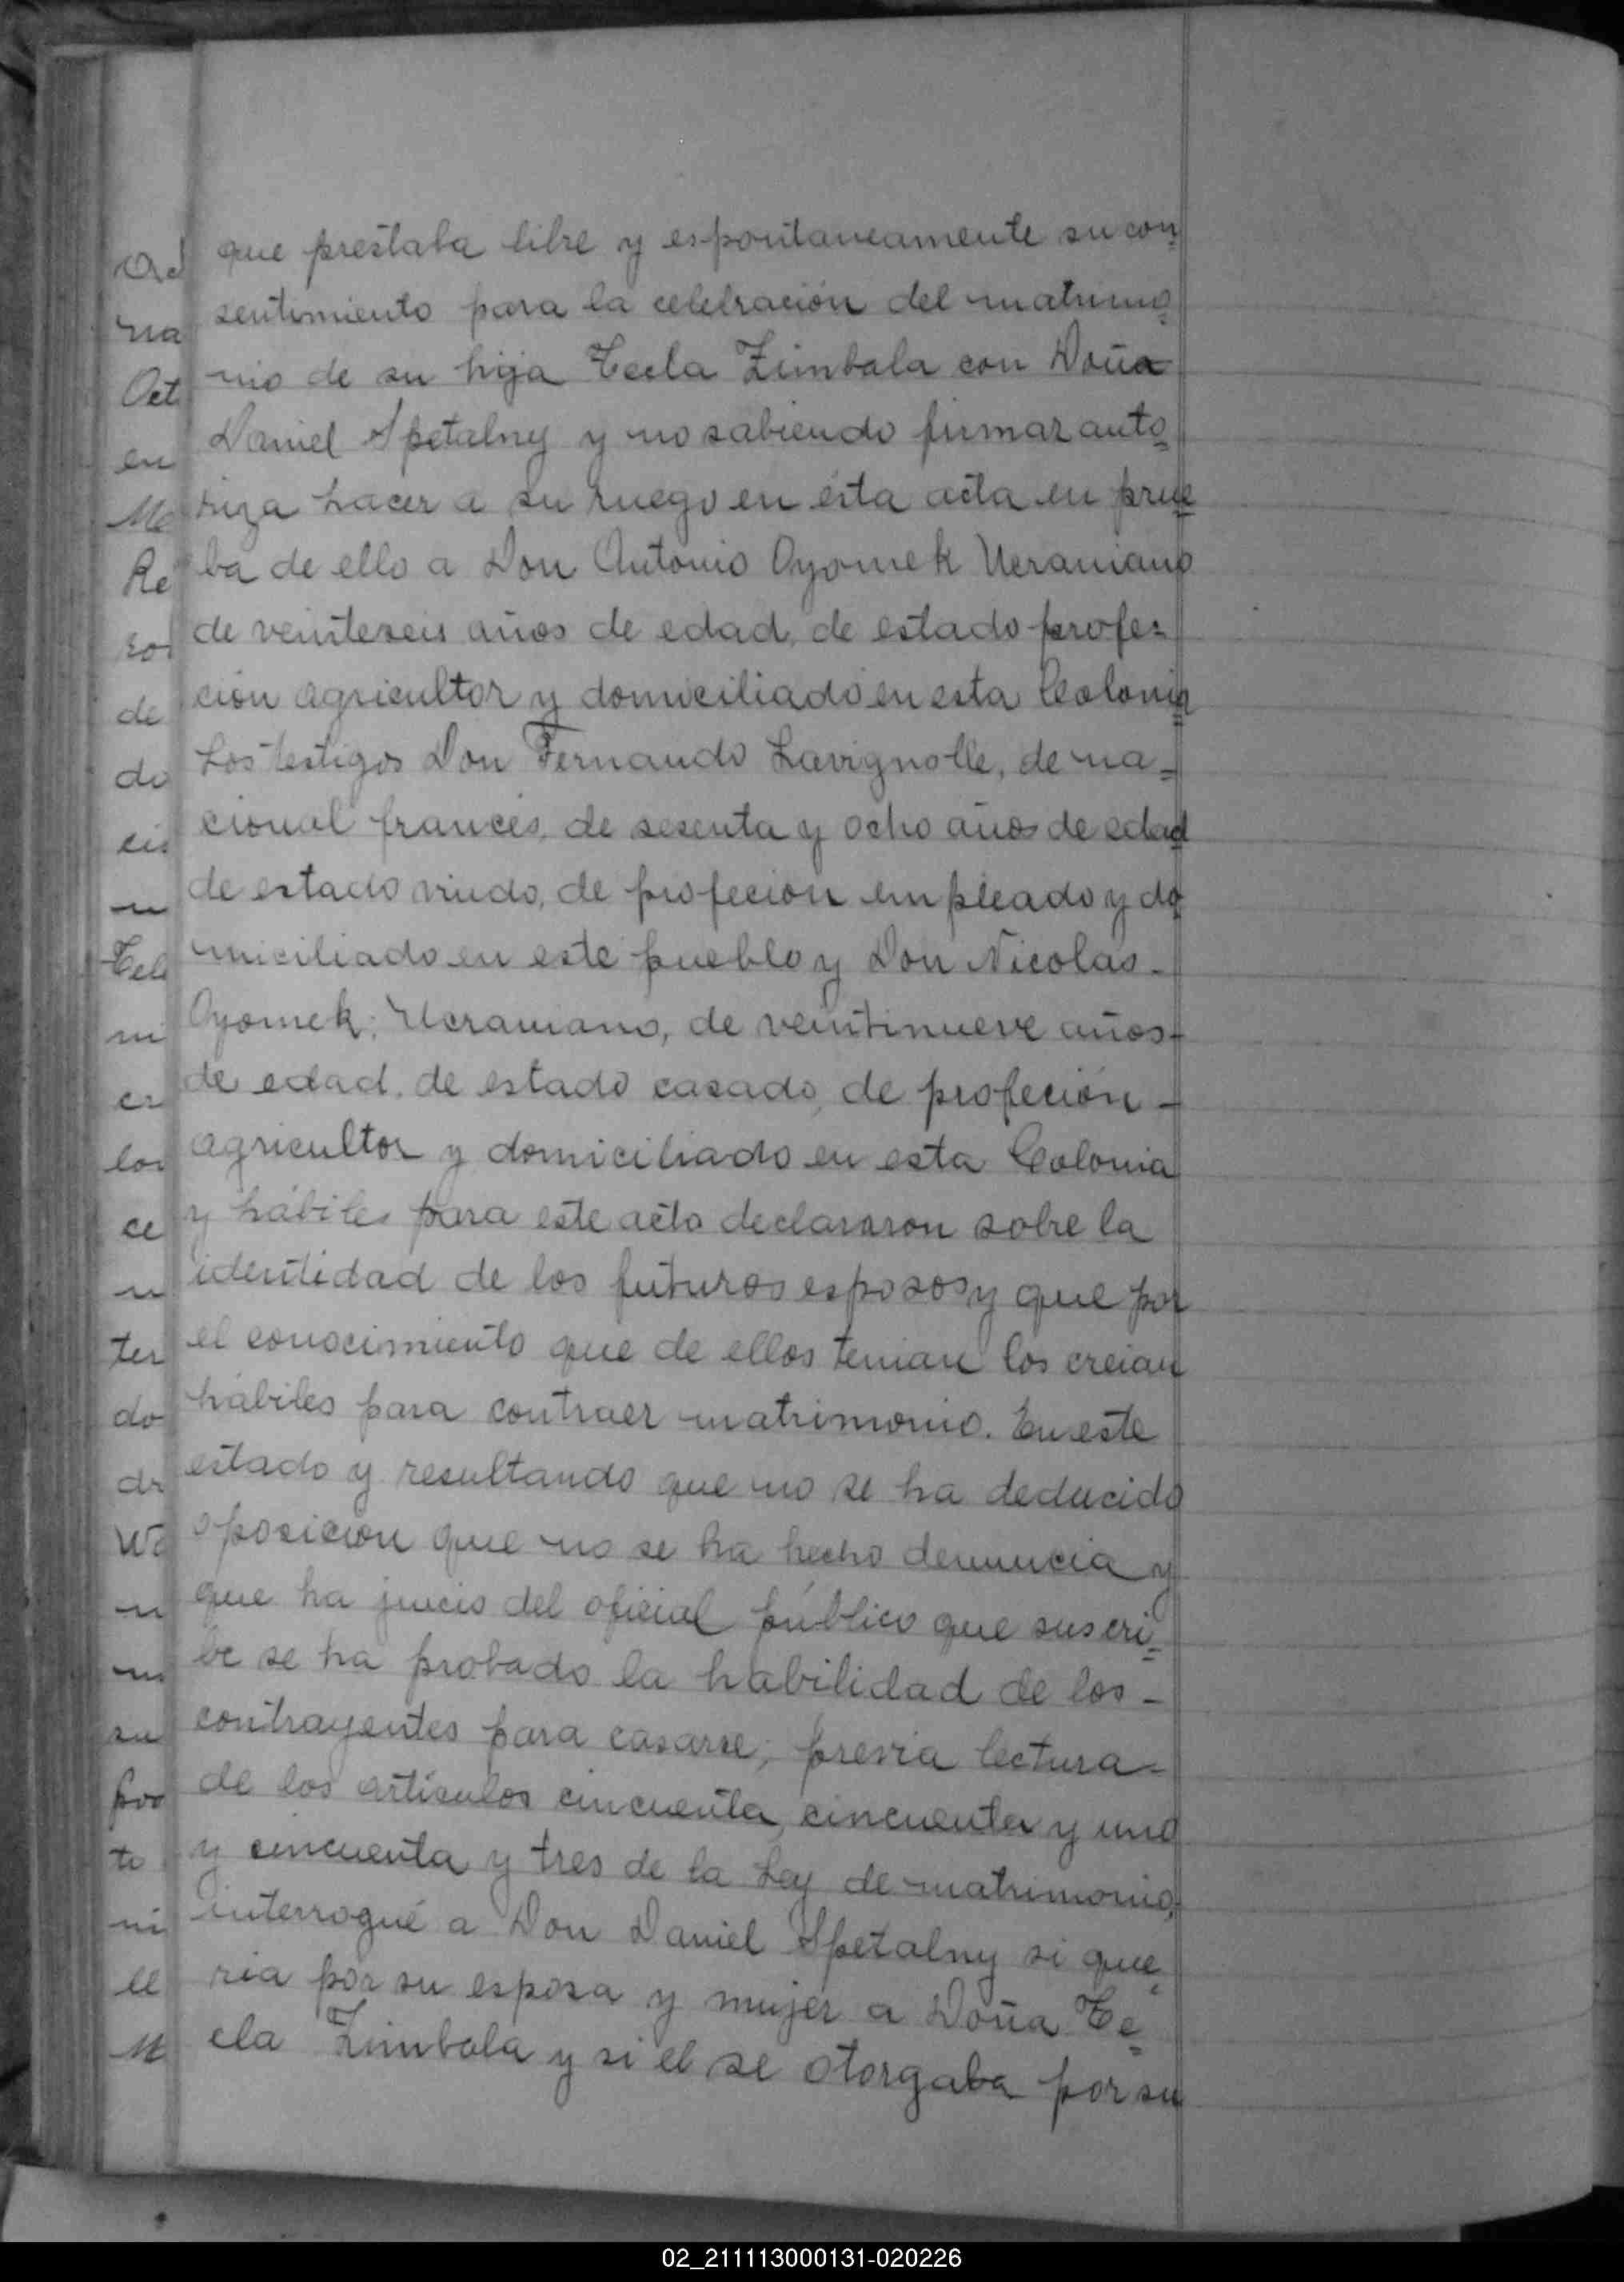 que prestaba libre y espontaneamente su con=
sentimiento para la celebración del matrimo=
nio de su hija Tecla Zimbala con Doña
Daniel Spetalny y no sabiendo firmar auto=
riza hacer a su ruego en ésta acta en prue=
ba de ello a Don Antonio Oyomek Ucraniano
de veinteseis años de edad, de estado profe=
cion agricultor y domiciliado en esta Colonia
Los testigos Don Fernando Lavignolle, de na=
cional francés, de sesenta y ocho años de edad
de estado viudo, de profecion empleado y do=
miciliado en este pueblo y Don Nicolas-
Oyomek; Ucraniano, de veintinueve años-
de edad, de estado casado, de profeción-
agricultor y domiciliado en esta Colonia
y hábiles para este acto declararon sobre la
identidad de los futuros esposos y que por
el conocimiento que de ellos tenian los creian
hábiles para contraer matrimonio. En este
estado y resultando que no se ha deducido
oposicion que no se ha hecho denuncia y
que ha juicio del oficial público que suscri=
be se ha probado la habilidad de los-
contrayentes para casarse; previa lectura-
de los artículos cincuenta, cincuenta y uno
y cincuenta y tres de la Ley de matrimonio,
interrogué a Don Daniel Spetalny si que=
ria por su esposa y mujer a Doña Te=
cla Zimbala y si el se otorgaba por su
02_211113000131-020226